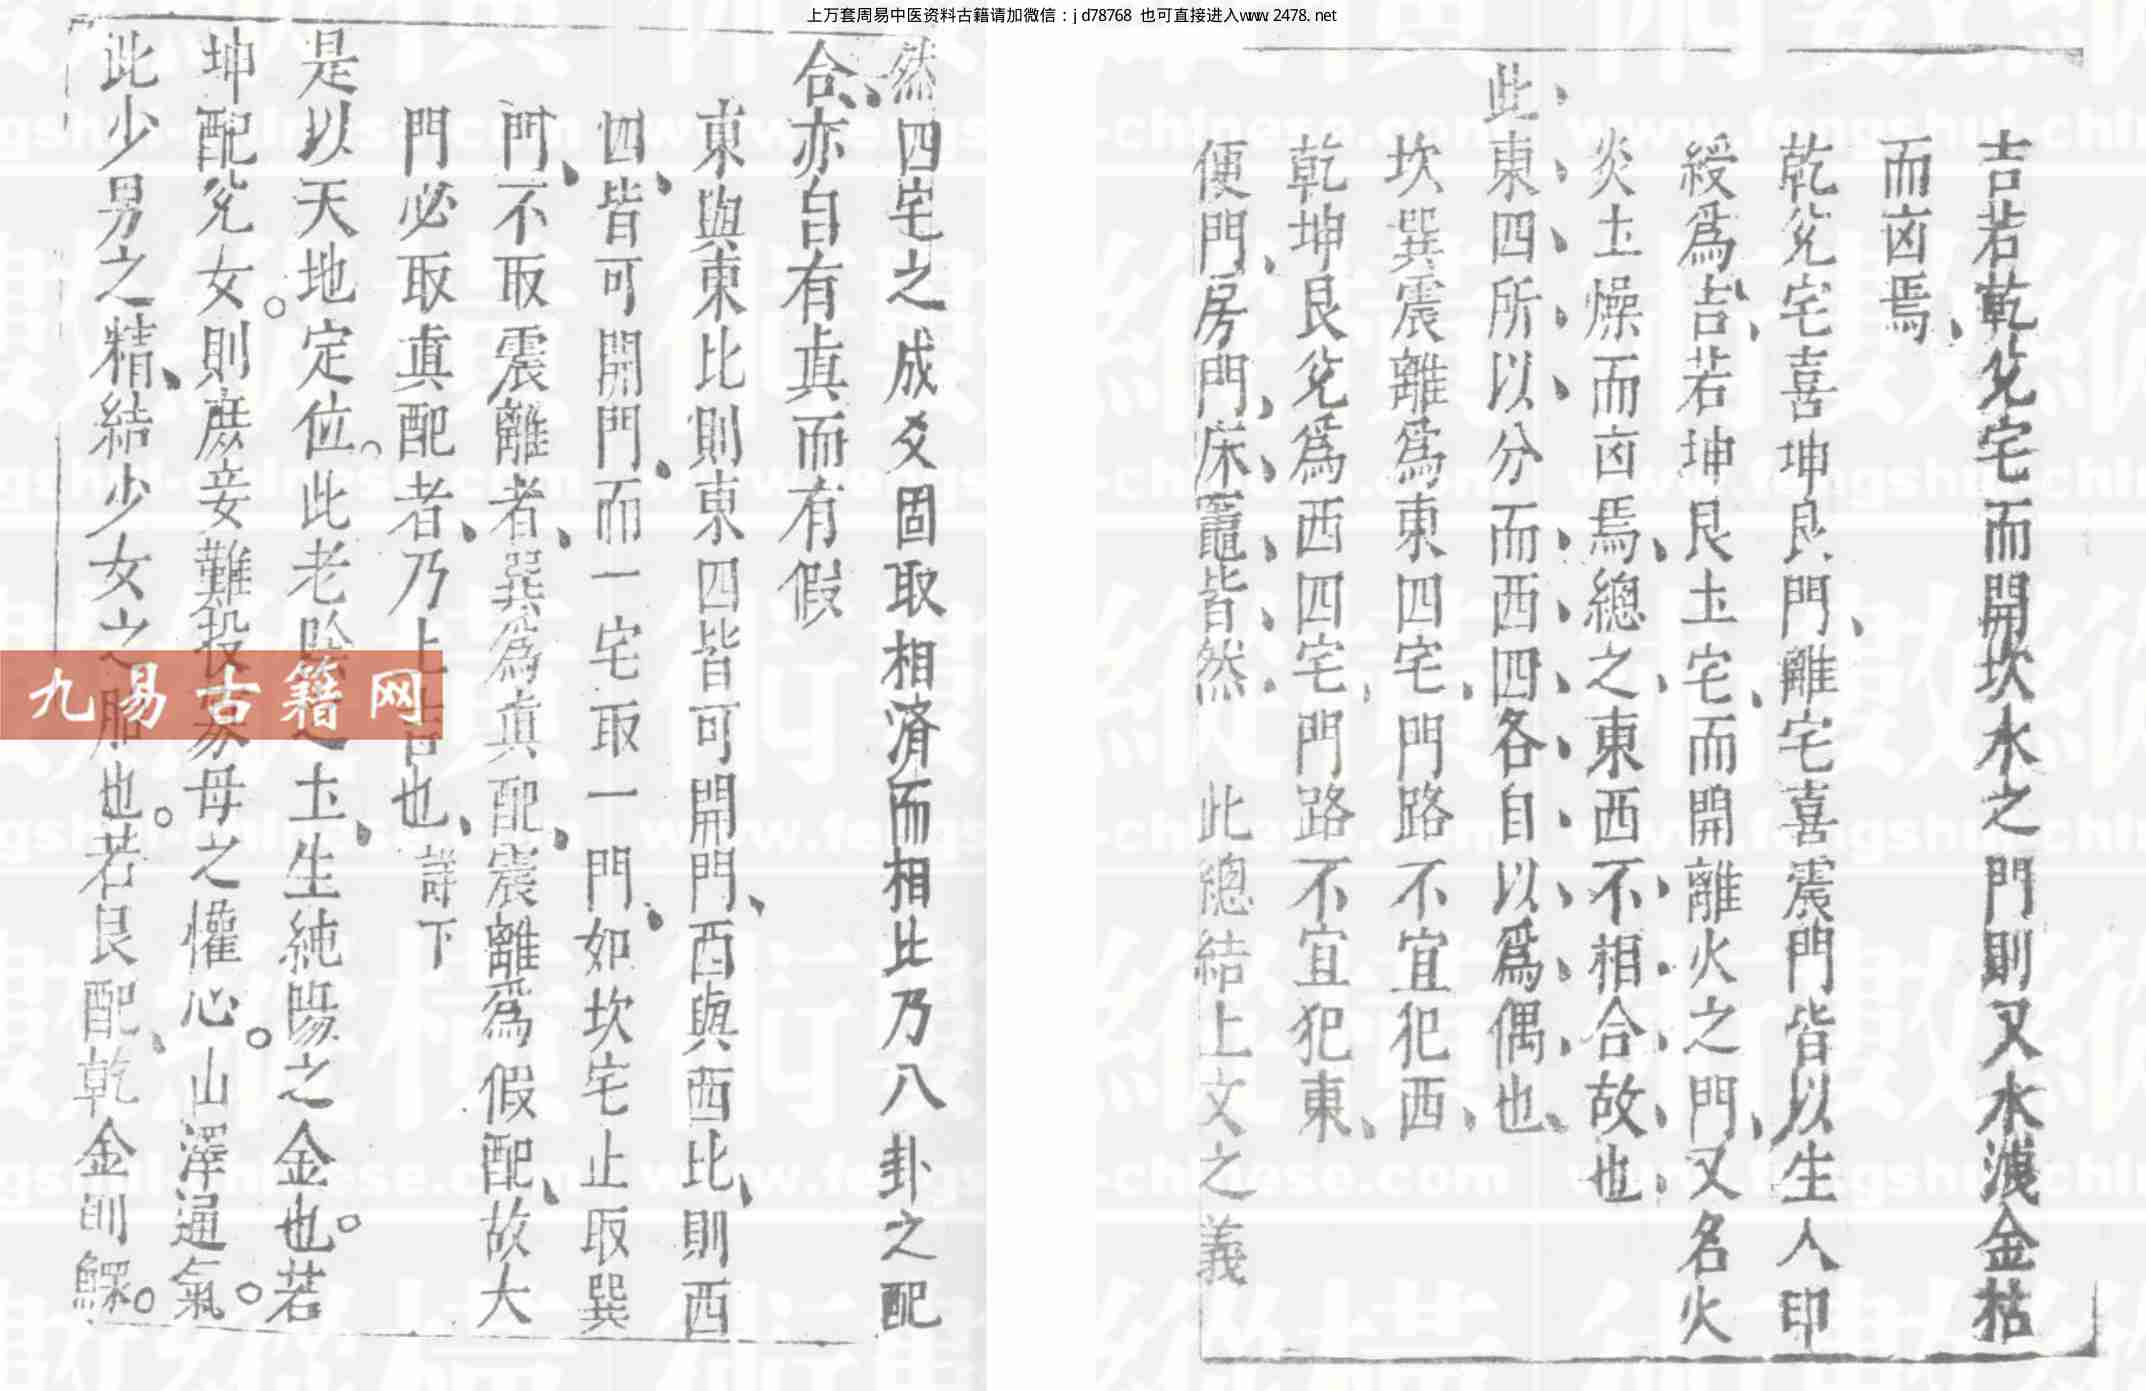 上万套周易中医资料古籍请加微信：jd78768 也可直接进入www.2478.net
吉若乾兊宅而開坎水之門則又水洩金枯
而凶焉、
乾兊宅喜坤艮門、離宅喜震門皆以生入印
綬爲吉、若坤艮土宅、而開離火之門、又名火
炎土燥而凶焉、總之、東西不相合故也、
此、東四所以分而西四各自以爲偶也、
坎巽震離爲東四宅、門路不宜犯西、
乾坤艮兊爲西四宅、門路不宜犯東、
便門、房門、床、竈、皆、然、 此總結上文之義
然四宅之成爻固取相濟而相比乃八卦之配
合、亦自有眞而有假
東與東比則東四皆可開門、西與西比、則西
四、皆可開門、而一宅取一門、如坎宅止取巽
門、不取震離者、巽爲眞配、震離爲假配、故大
門必取眞配者、乃上吉也、詳下
是以天地定位。此老陰之土、生純陽之金也。若
坤配兊女。則庶妾難投寡母之懽心。山澤通氣。
此少男之精、結少女之胎也。若艮配、乾金則鰥。
九易古籍网
www.fengshui-chinese.com